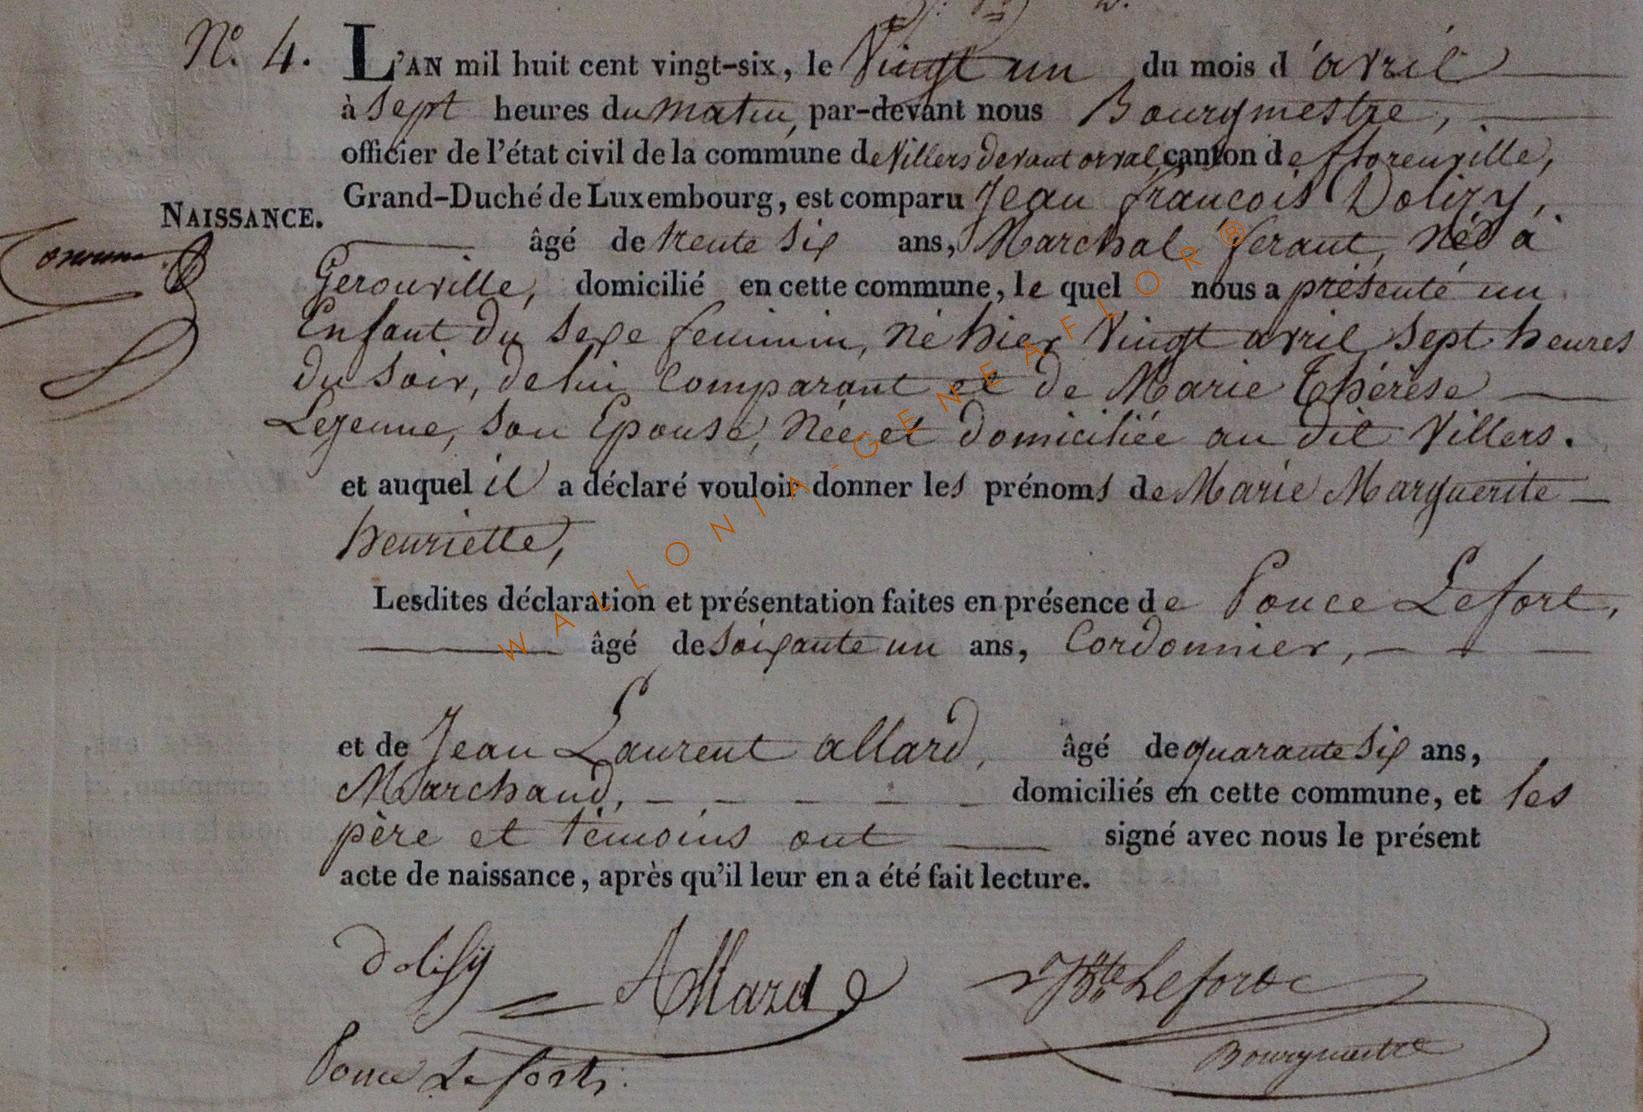 N.° 4. L'AN mil huit cent vingt-six, le Vingt un du mois d'avril
à sept heures du matin, par-devant nous Bourgmestre,
officier de l'état civil de la commune de Villers devant orval, canton de florenville,
Grand-Duché de Luxembourg, est comparu Jean françois Dolizy,
NAISSANCE.
âgé de trente six ans, Marchal ferant, né à
Gerouville, domicilié en cette commune, le quel nous a présenté un
Enfant du sexe feminin, né hier Vingt avril sept heures
du soir, de lui Comparant et de Marie Thérèse
Lejeune, son Epouse, née et domiciliée au dit Villers.
et auquel il a déclaré vouloir donner les prénoms de Marie Marguerite
henriette,
Lesdites déclaration et présentation faites en présence de Ponce Lefort,
âgé de soixante un ans, Cordonnier,
et de Jean Laurent allard, âgé de quarante six ans,
Marchand, domiciliés en cette commune, et les
père et témoins ont signé avec nous le présent
acte de naissance, après qu'il leur en a été fait lecture.
dolisy Allard Lefort
Ponce Lefort Bourgmestre
WALLONIA-GENEAFLOR®